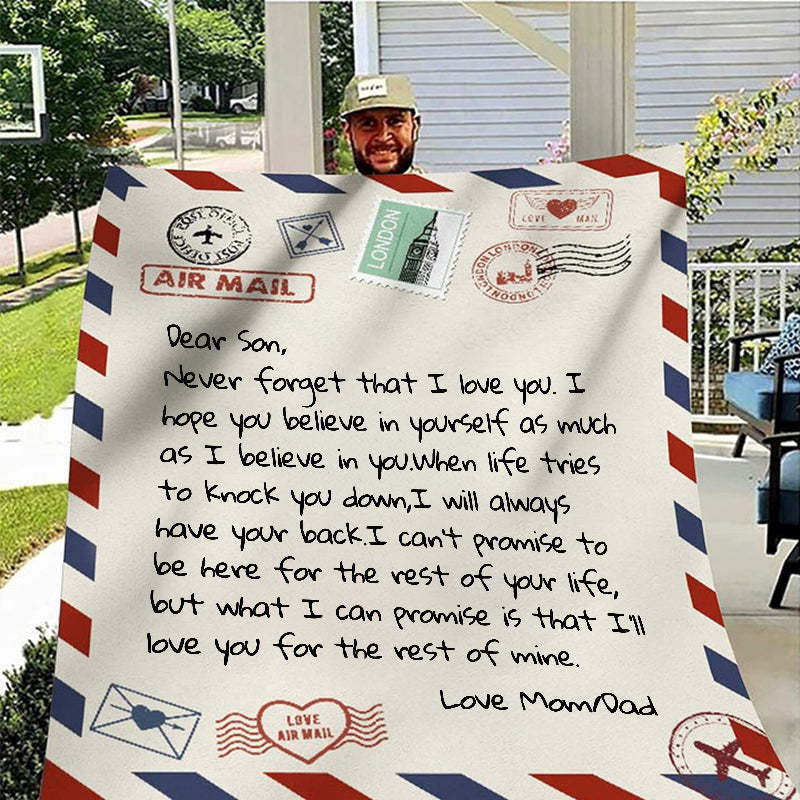 POST OFFICE
POST OFFICE
AIR MAIL
LONDON
LOVE MAIL
LONDON LONDON
LONDON
Dear Son,
Never forget that I love you. I
hope you believe in yourself as much
as I believe in you.When life tries
to knock you down,I will always
have your back.I can't promise to
be here for the rest of your life,
but what I can promise is that I'll
love you for the rest of mine.
Love Mom/Dad
LOVE
AIR MAIL